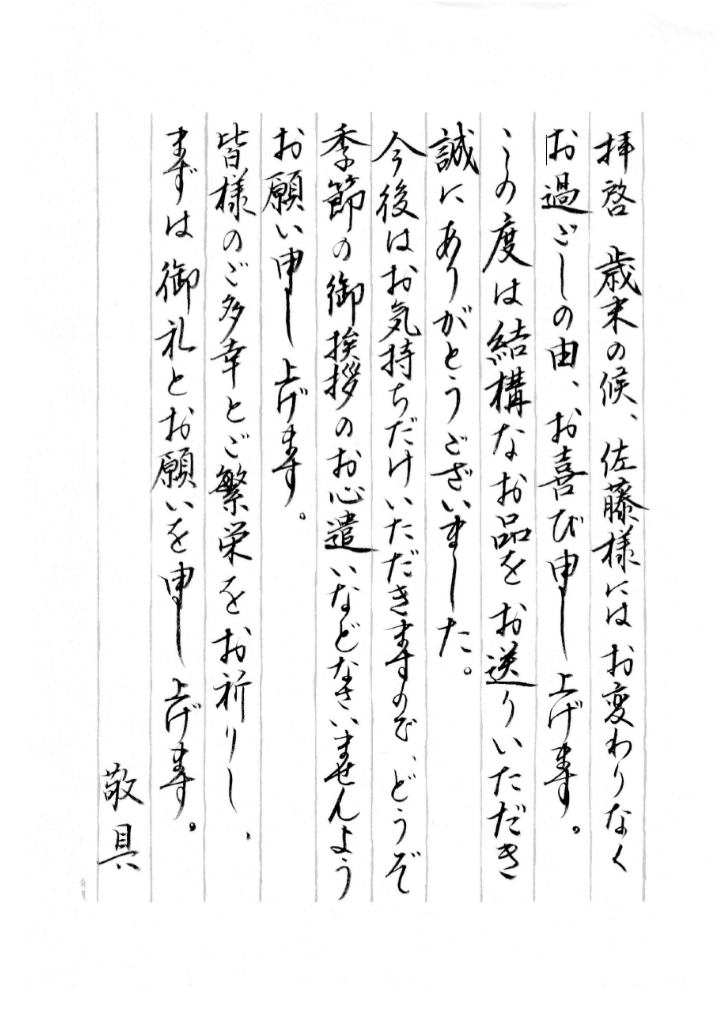 拝啓　歳末の候、佐藤様にはお変わりなく
お過ごしの由、お喜び申し上げます。
この度は結構なお品をお送りいただき
誠にありがとうございました。
今後はお気持ちだけいただきますので、どうぞ
季節の御挨拶のお心遣いなどなさいませんよう
お願い申し上げます。
皆様のご多幸とご繁栄をお祈りし、
まずは御礼とお願いを申し上げます。
敬具